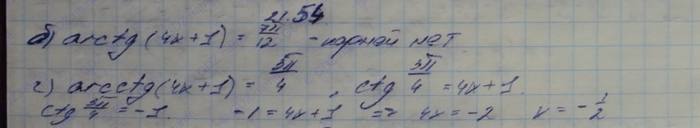 21.54
б) arctg (4x+1) = 7π/12 - корней нет
г) arcctg (4x+1) = 3π/4 , ctg 3π/4 = 4x+1.
ctg 3π/4 = -1. -1 = 4x+1 => 4x = -2 x = -1/2